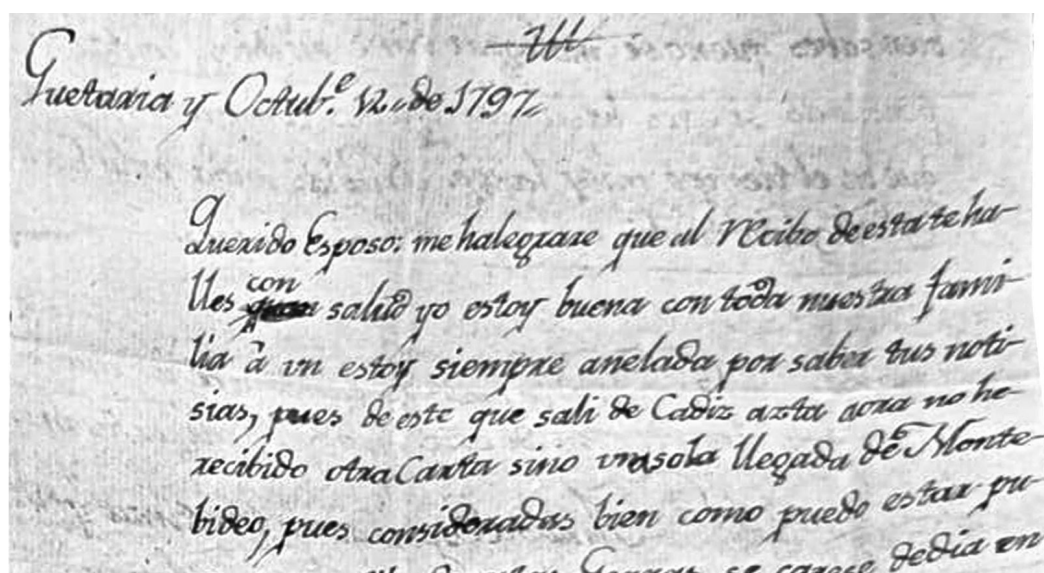 Guetaria y Octub.e 12, de 1797,
Querido Esposo: me halegrare que al recibo de esta te ha-
lles con salud yo estoy buena con toda nuestra fami-
lia â vn estoy siempre anelada por saber tus noti-
sias, pues de este que sali de Cadiz azta aora no he
recibido otra Carta sino vna sola llegada de Monte-
bideo, pues consideradas bien como puedo estar pu-
Genras se carese dedia en